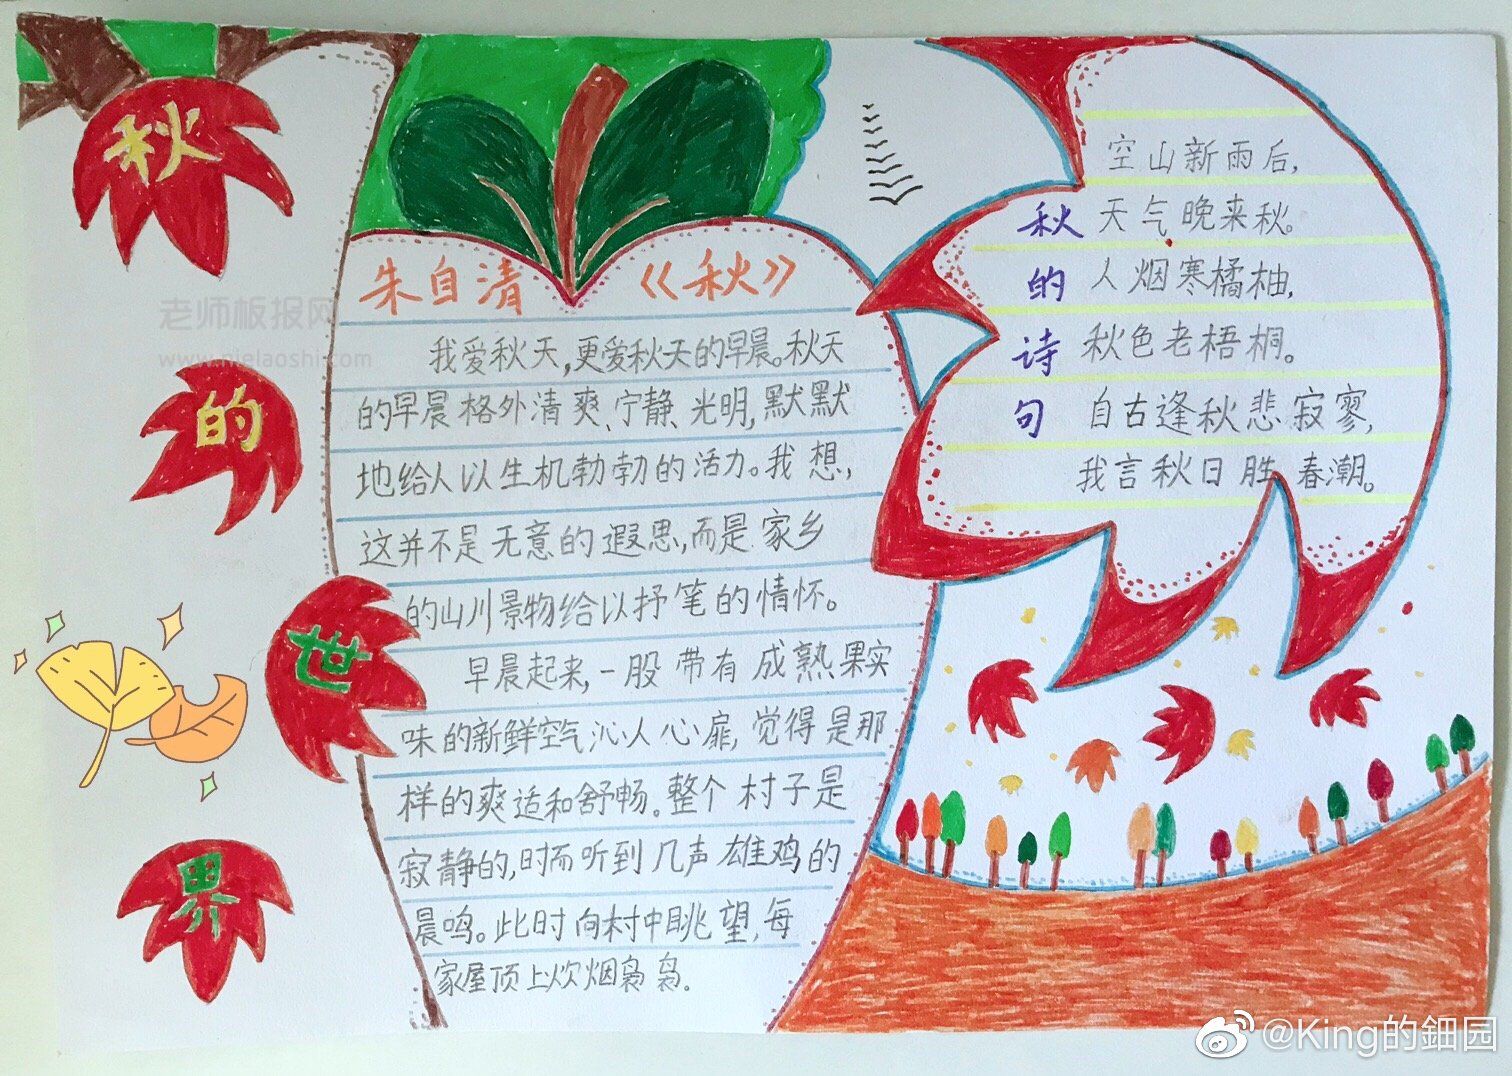 秋
的
世
界
老师板报网
朱自清 《秋》
我爱秋天,更爱秋天的早晨。秋天
的早晨格外清爽、宁静、光明,默默
地给人以生机勃勃的活力。我想,
这并不是无意的遐思,而是家乡
的山川景物给以抒笔的情怀。
早晨起来,一股带有成熟果实
味的新鲜空气沁人心扉,觉得是那
样的爽适和舒畅。整个村子是
寂静的,时而听到几声雄鸡的
晨鸣。此时向村中眺望,每
家屋顶上炊烟袅袅.
秋的诗句
空山新雨后,
天气晚来秋。
人烟寒橘柚,
秋色老梧桐。
自古逢秋悲寂寥,
我言秋日胜春潮。
@King的鈿园